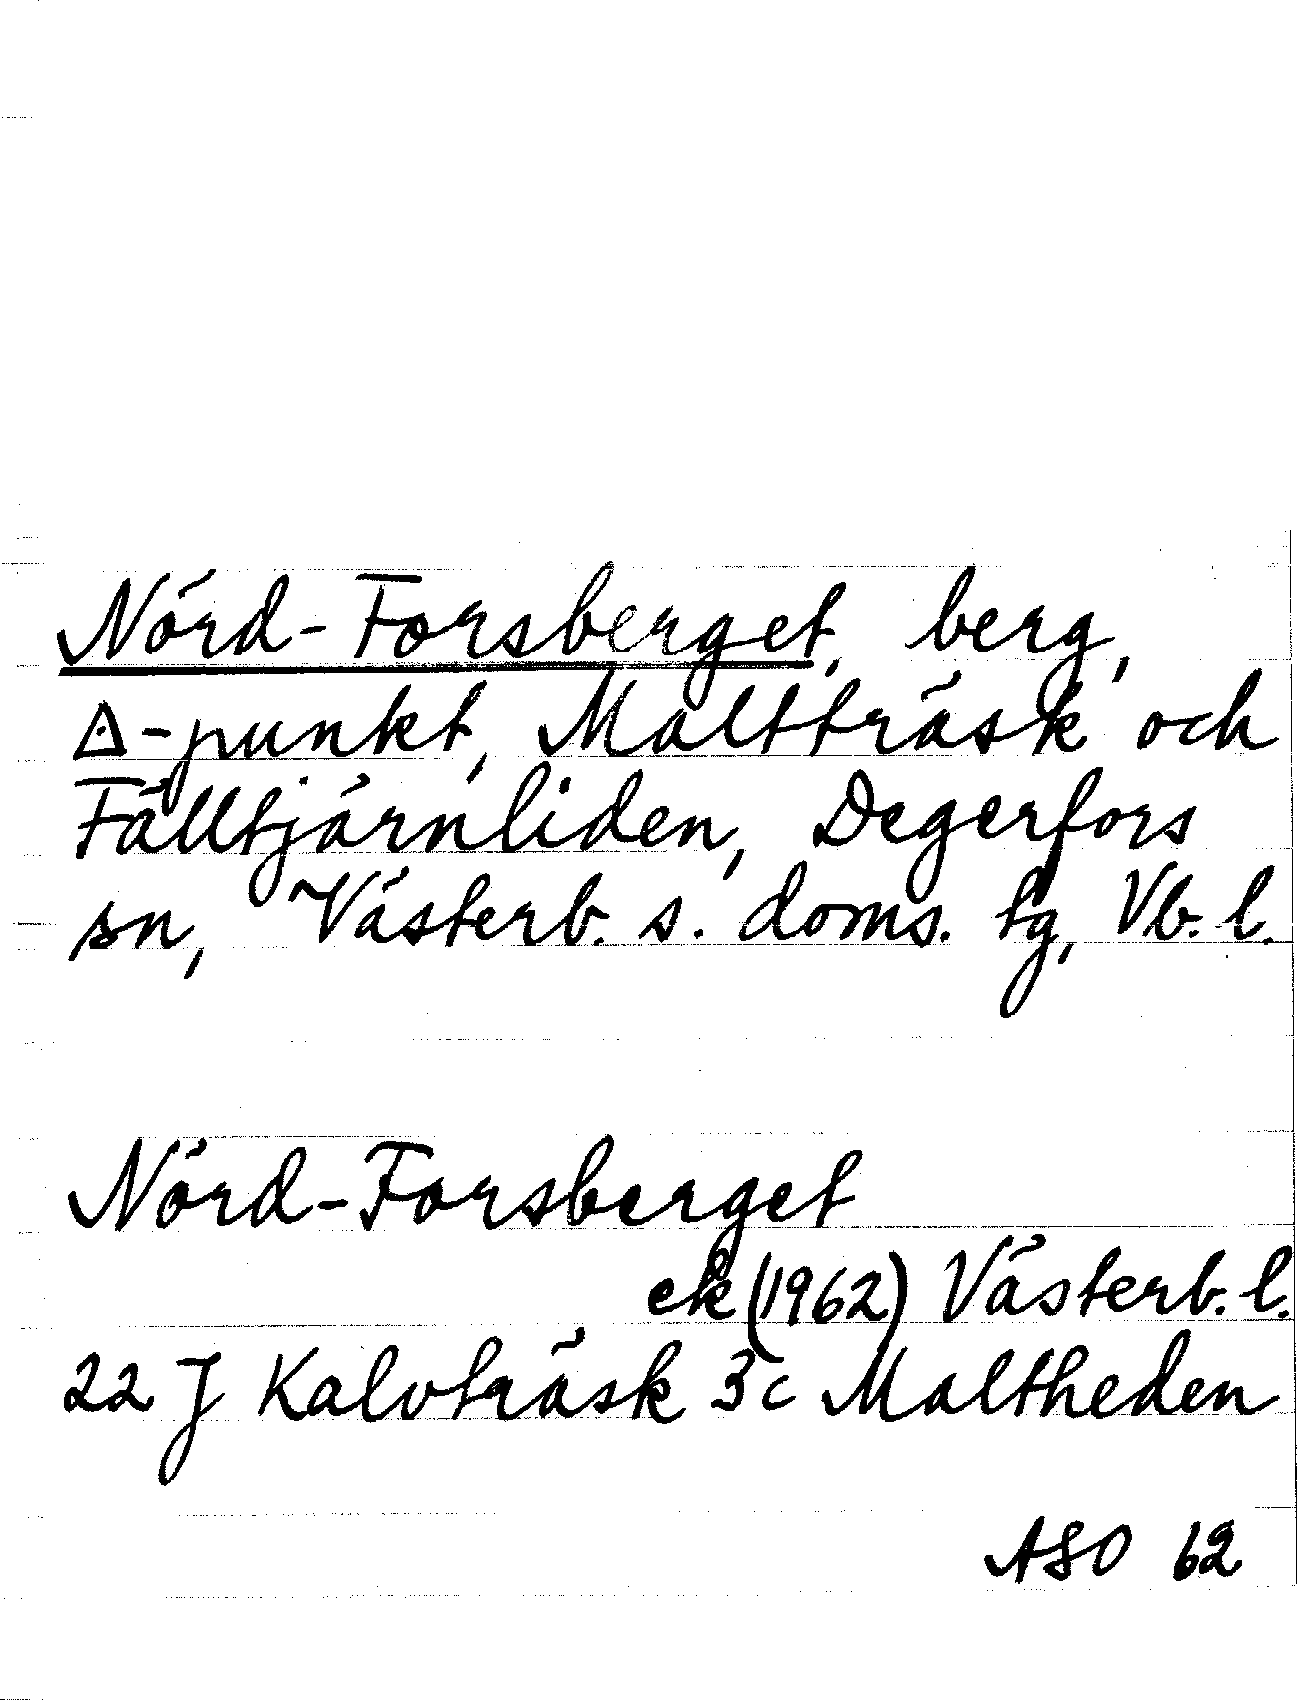 Nörd-Forsberget, berg,
△-punkt, Maltträsk och
Fälltjärnliden, Degerfors
sn, Västerb. s. doms. tg, Vb. l.
Nörd-Forsberget
ek (1962) Västerb. l.
22 J Kalvträsk 3c Maltheden
ASO 62